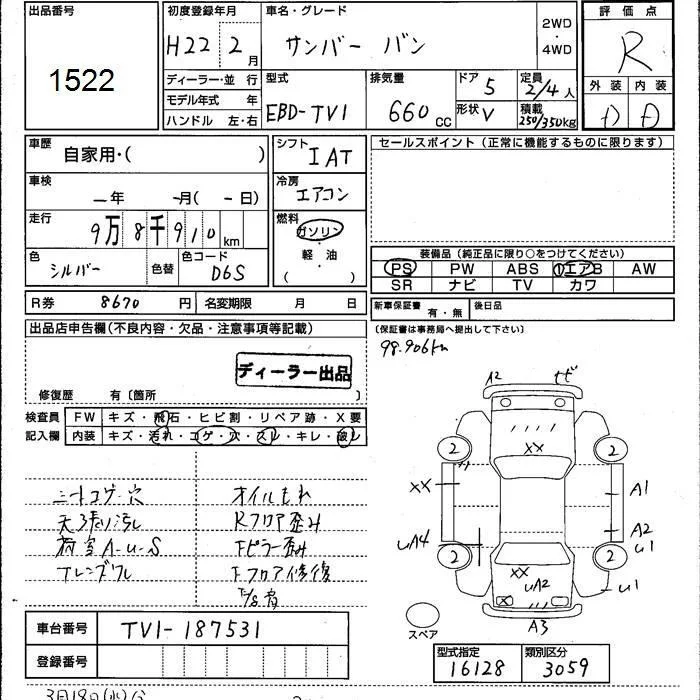 出品番号
1522
初度登録年月
H22 2月
車名・グレード
サンバー バン
2WD
・
4WD
評価点
R
外装 内装
D D
ディーラー・並 行
モデル年式 年
ハンドル 左・右
型式
EBD-TV1
排気量
660cc
ドア 5
形状 V
定員
2/4人
積載
250/350kg
車歴
自家用・( )
車検
—年 —月( —日)
走行
9万8千910km
色
シルバー
色替
色コード
D6S
シフト
IAT
冷房
エアコン
燃料
ガソリン
・
軽・油
( )
セールスポイント (正常に機能するものに限ります)
装備品 (純正品に限り○をつけてください)
PS PW ABS ①エアB AW
SR ナビ TV カワ
R券 8670円
名変期限 月 日
新車保証書
有・無
後日品
(保証書は事務局へ提出して下さい)
98.906km
出品店申告欄 (不良内容・欠品・注意事項等記載)
ディーラー出品
修復歴 有〔箇所 〕
検査員
記入欄
FW キズ・飛石・ヒビ割・リペア跡・X要
内装 キズ・汚れ・コゲ・穴・スレ・キレ・破レ
シートコゲ・穴
天張り汚れ
荷室A-U-S
オイルもれ
Rフロア歪み
Fピラー歪み
Fフロア修復
A2
XX
2 2
XX
A1
A2
U1
UA4
2 2
XX
UA2
U1
X
A3
スペア
車台番号
TV1-187531
登録番号
型式指定
16128
類別区分
3059
3月18日(水)